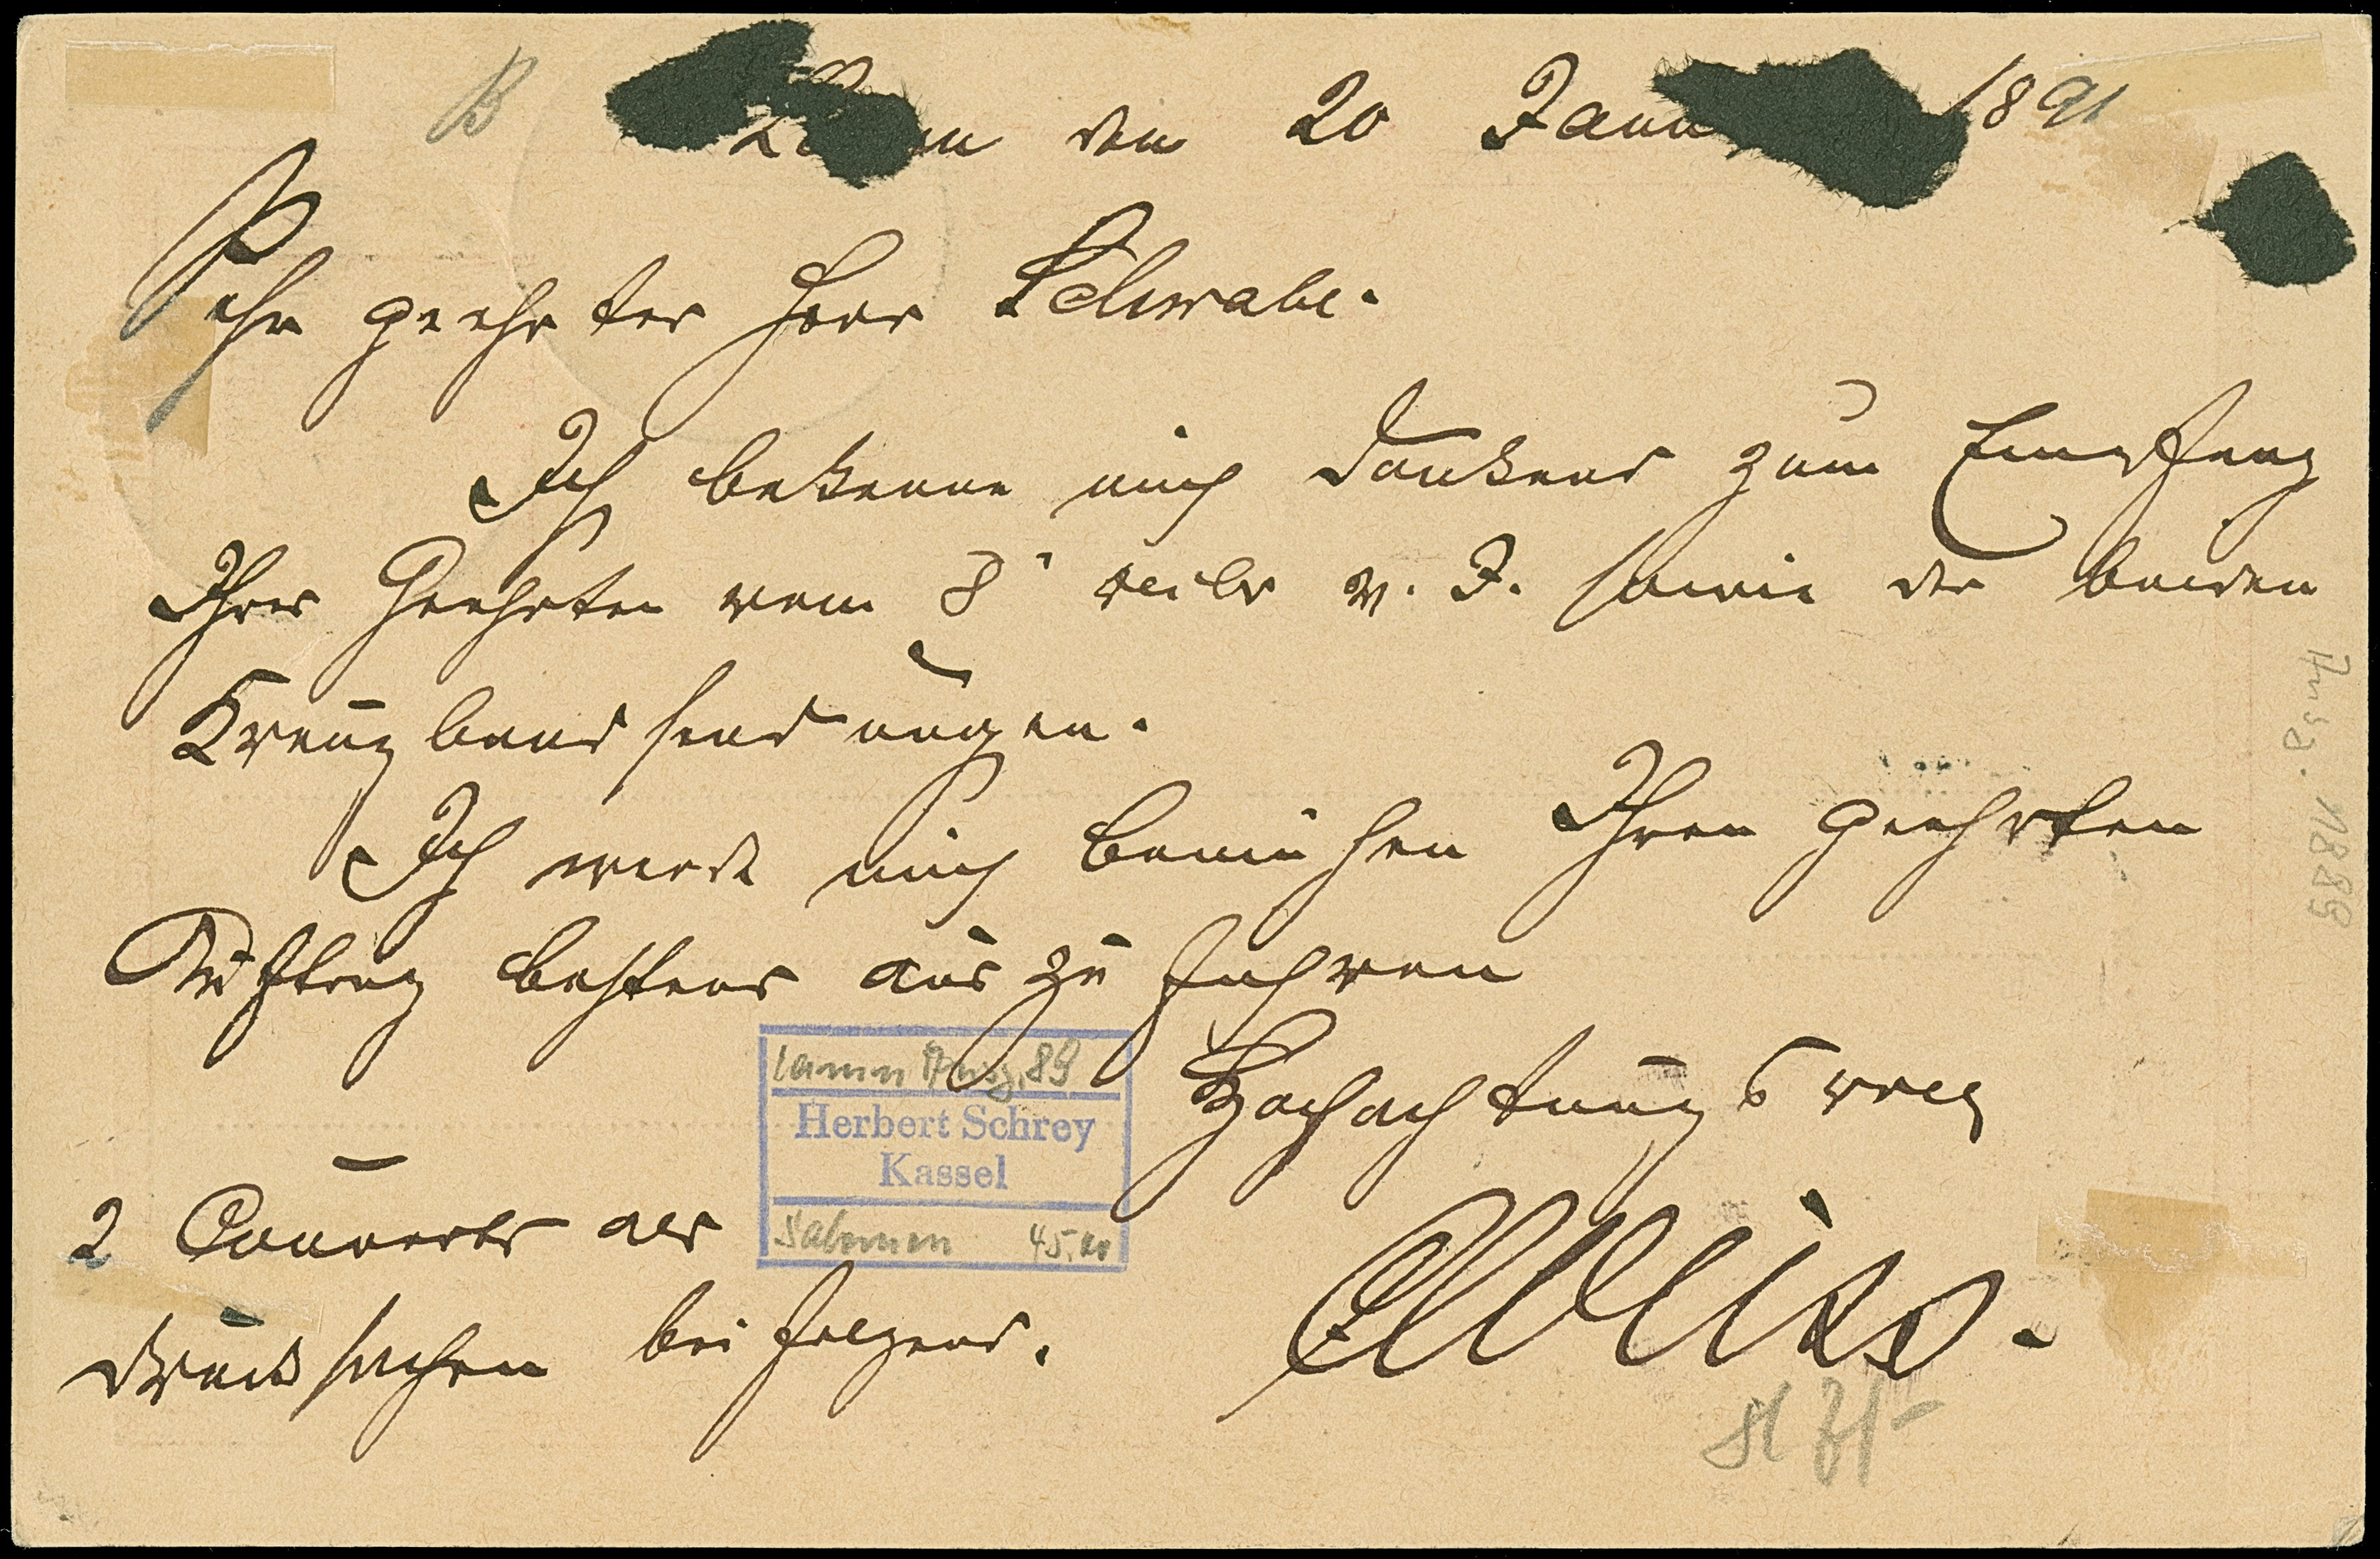 den 20 Janu 1891
Sehr geehrter Herr Schwabe.
Ich bekenne mich dankend zum Empfang
Ihres Geehrten vom 8' v. J. sowie der beiden
Kreuzbandsendungen.
Ich werde mich bemühen Ihren geehrten
Auftrag bestens auszuführen
Hochachtungsvoll
EWeiss.
2 Couverts als
drucksachen beifolgend.
Herbert Schrey
Kassel
45.
1889
B